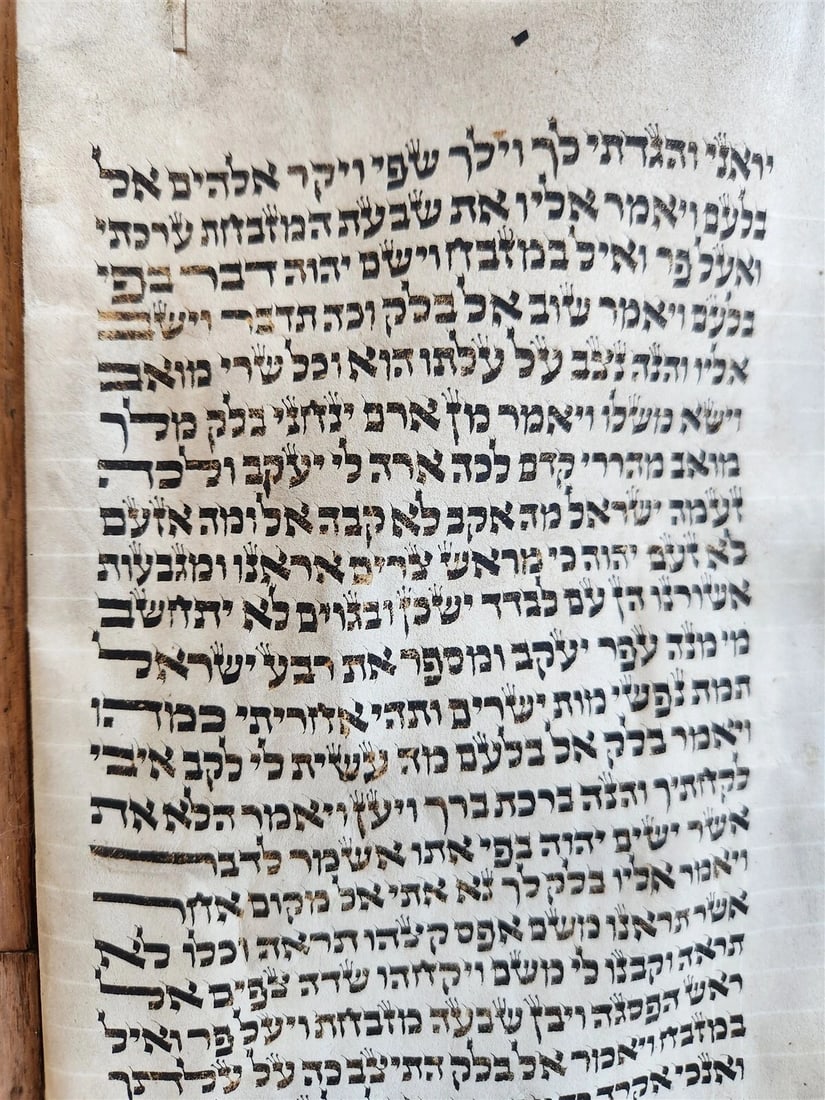 יואני והגדתי לך וילך שפי ויקר אלהים אל
בלעם ויאמר אליו את שבעת המזבחת ערכתי
ואעל פר ואיל במזבח וישם יהוה דבר בפי
בלעם ויאמר שוב אל בלק וכה תדבר וישב
אליו והנה נצב על עלתו הוא וכל שרי מואב
וישא משלו ויאמר מן ארם ינחני בלק מלך
מואב מהררי קדם לכה ארה לי יעקב ולכה
זעמה ישראל מה אקב לא קבה אל ומה אזעם
לא זעם יהוה כי מראש צרים אראנו ומגבעות
אשורנו הן עם לבדד ישכן ובגוים לא יתחשב
מי מנה עפר יעקב ומספר את רבע ישראל
תמת נפשי מות ישרים ותהי אחריתי כמהו
ויאמר בלק אל בלעם מה עשית לי לקב איבי
לקחתיך והנה ברכת ברך ויען ויאמר הלא את
אשר ישים יהוה בפי אתו אשמר לדבר
ויאמר אליו בלק לך נא אתי אל מקום אחר
אשר תראנו משם אפס קצהו תראה וכלו לא
תראה וקבנו לי משם ויקחהו שדה צפים אל
ראש הפסגה ויבן שבעה מזבחת ויעל פר ואיל
במזבח ויאמר אל בלק התיצב כה על עלתך
ואנכי אקרה